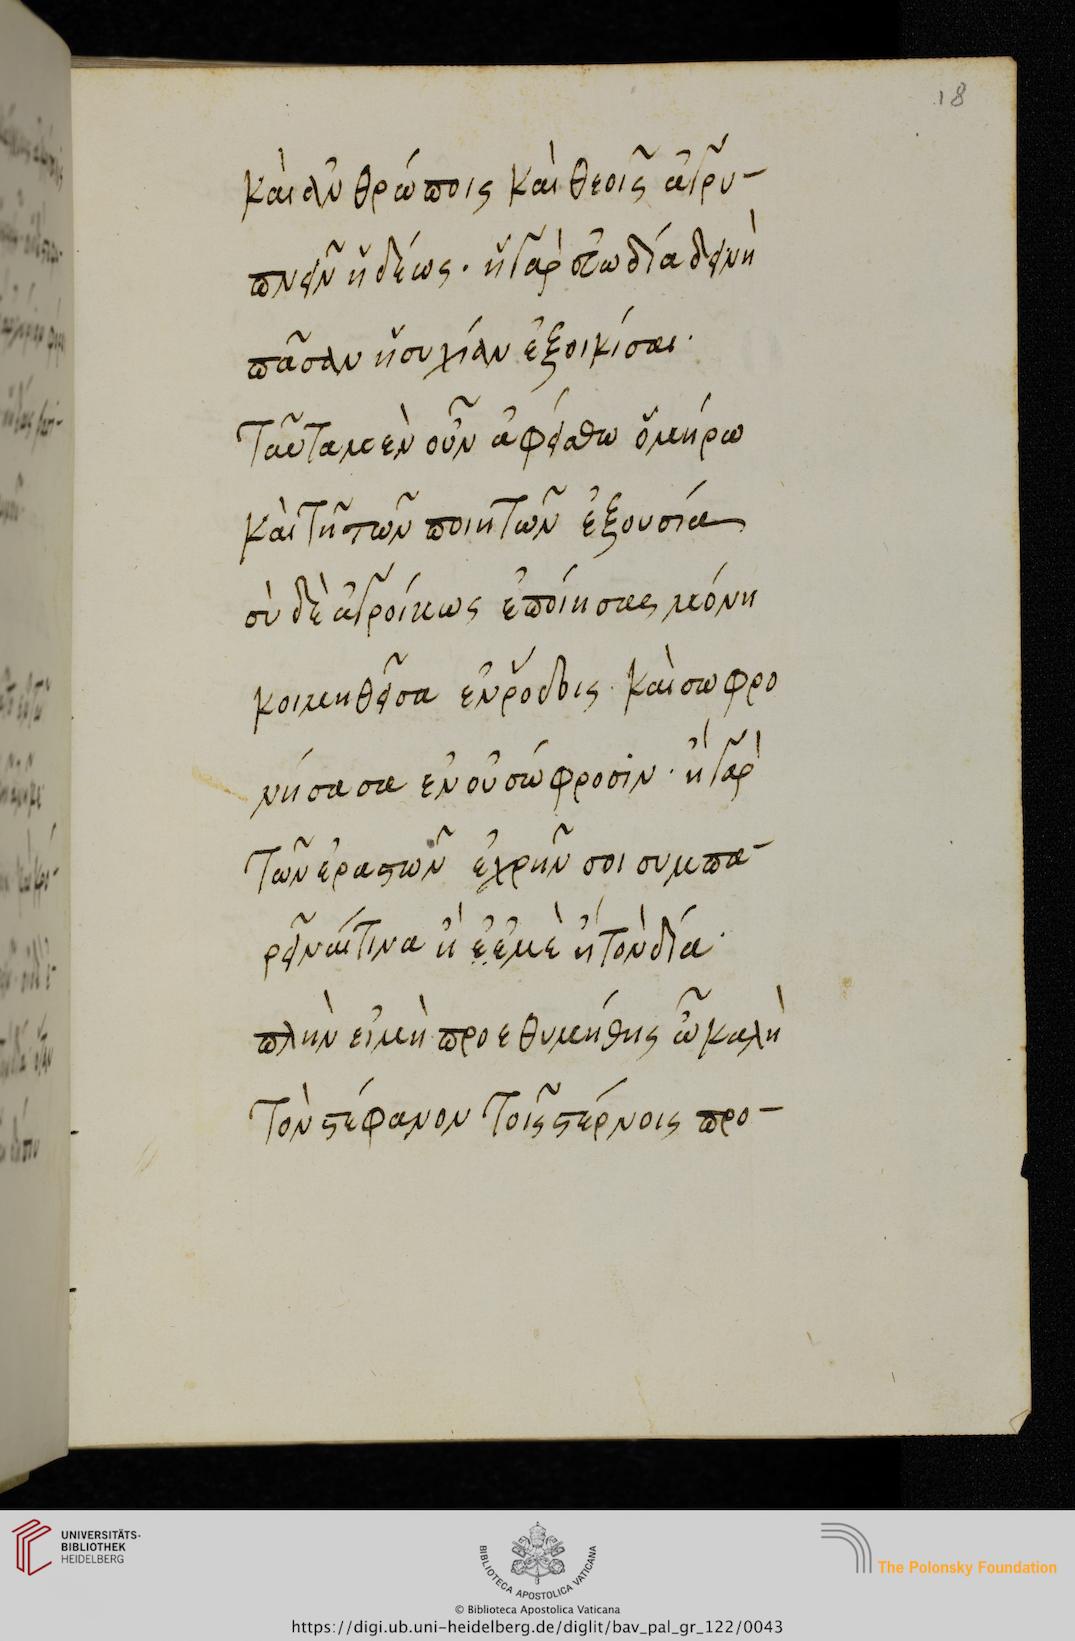 18
καὶ ἀνθρώποις καὶ θεοῖς ἀγρυ-
πνεῖν ἡδέως. ἢ γὰρ στῶ δία δεινὴ
πᾶσαν ἡσυχίαν ἐξοικίσαι.
Ταῦτα μὲν οὖν ἀφείσθω ὁμήρω
καὶ τῆ τῶν ποιητῶν ἐξουσία
σὺ δὲ ἀγροίκως ἐποίησας μόνη
κοιμηθεῖσα ἐν ῥόδοις. καὶ σωφρο
νήσασα ἐν οὐ σώφροσιν. ἢ γὰρ
τῶν ἐραστῶν ἐχρῆν σοι συμπα-
ρεῖναί τινα ἢ ἐμὲ ἢ τὸν δία.
πλὴν εἰ μὴ προεθυμήθης ὦ καλὴ
τὸν στέφανον τοῖς στέρνοις προ-
UNIVERSITÄTS-
BIBLIOTHEK
HEIDELBERG
BIBLIOTECA APOSTOLICA VATICANA
The Polonsky Foundation
© Biblioteca Apostolica Vaticana
https://digi.ub.uni-heidelberg.de/diglit/bav_pal_gr_122/0043